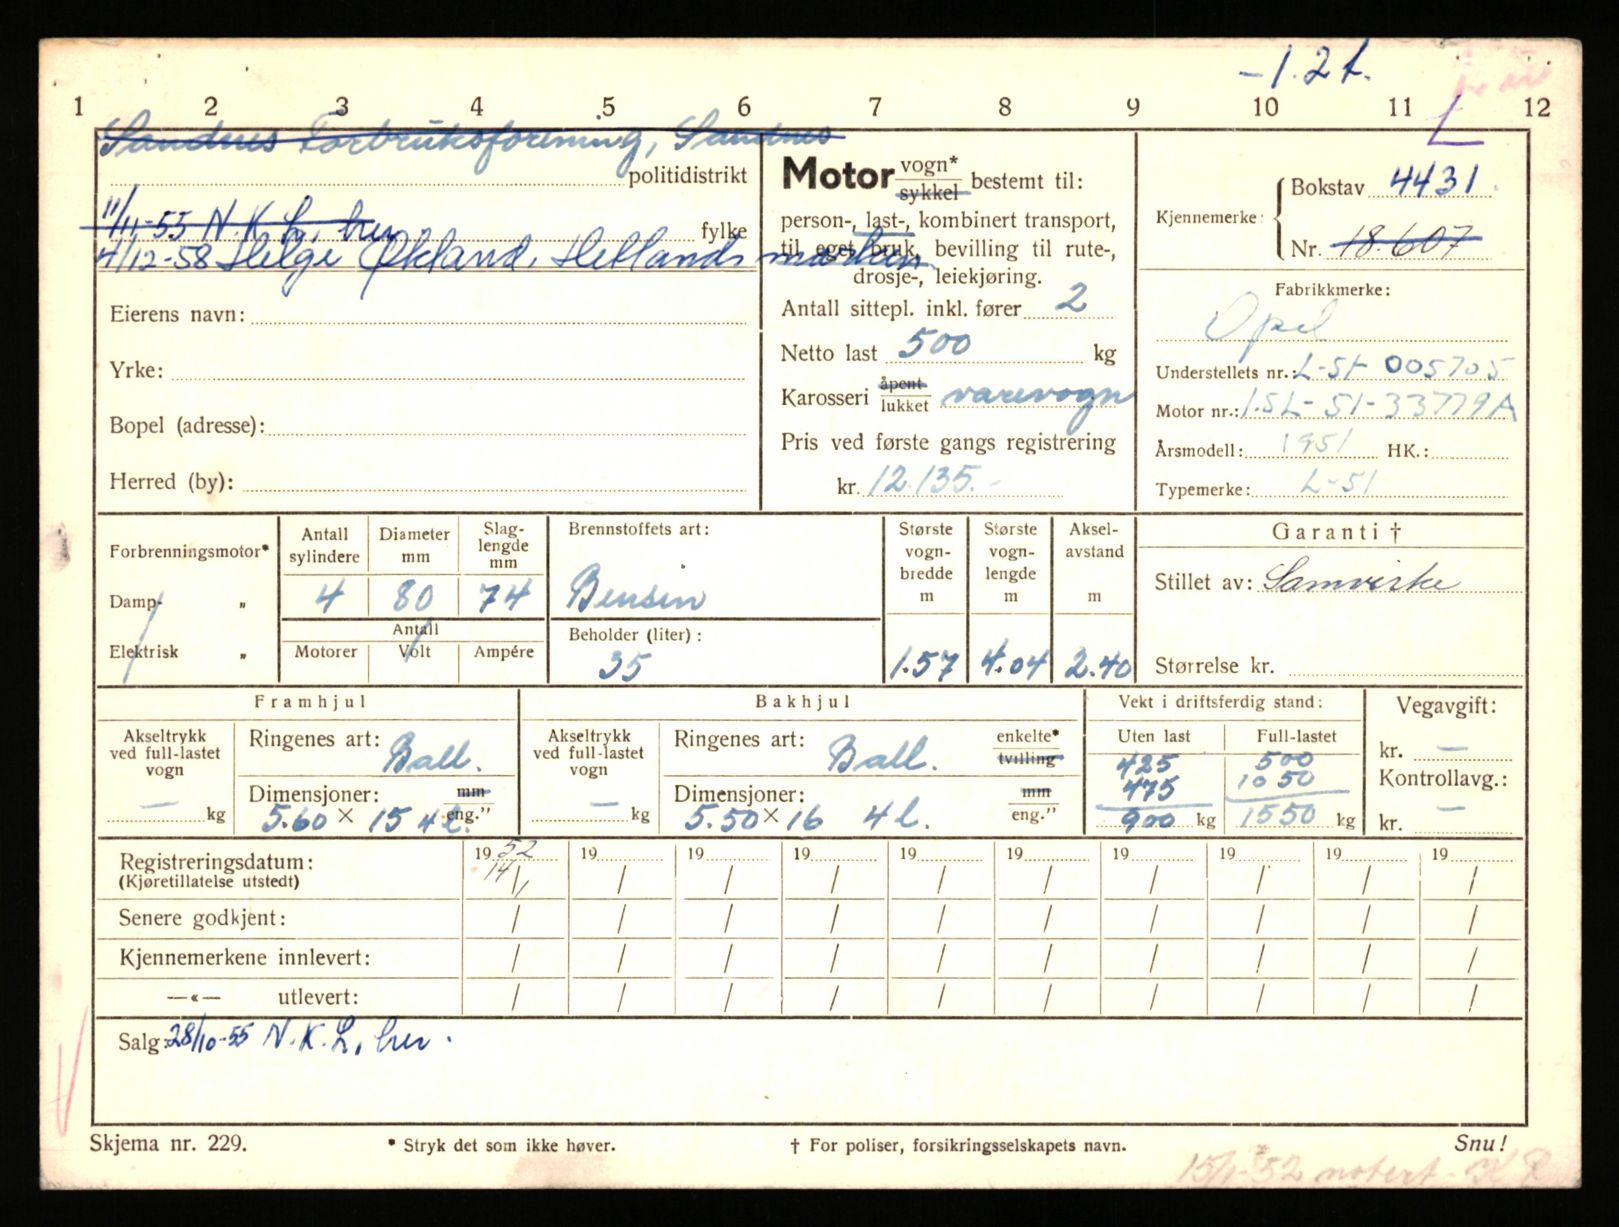 -1.2 t.
1 2 3 4 5 6 7 8 9 10 11 12
Sandnes Forbruksforening, Sandnes
politidistrikt
11/11-55 N.K.L., her
fylke
4/12-58 Helge Økland, Hetlandsmarken
Eierens navn:
Yrke:
Bopel (adresse):
Herred (by):
Motor vogn* sykkel bestemt til:
person-, last-, kombinert transport,
til eget bruk, bevilling til rute-,
drosje-, leiekjøring.
Antall sittepl. inkl. fører 2
Netto last 500 kg
Karosseri åpent lukket varevogn
Pris ved første gangs registrering
kr. 12.135.-
Kjennemerke: Bokstav 4431
Nr. 18.607
Fabrikkmerke:
Opel
Understellets nr.: L-51 005705
Motor nr.: 1.5L-51-33779A
Årsmodell: 1951 HK.:
Typemerke: L-51
Forbrenningsmotor*
Damp- „
Elektrisk „
Antall sylindere
Diameter mm
Slag-lengde mm
4 80 74
Antall
Motorer Volt Ampére
Brennstoffets art:
Bensin
Beholder (liter):
35
Største vogn-bredde m
Største vogn-lengde m
Aksel-avstand m
1.57 4.04 2.40
Garanti †
Stillet av: Samvirke
Størrelse kr.
Framhjul
Akseltrykk ved full-lastet vogn
— kg
Ringenes art: Ball.
Dimensjoner: mm
5.60 × 15 4 l. eng."
Bakhjul
Akseltrykk ved full-lastet vogn
— kg
Ringenes art: Ball. enkelte* tvilling
Dimensjoner: mm
5.50 × 16 4 l. eng."
Vekt i driftsferdig stand:
Uten last Full-lastet
425 500
475 1050
900 kg 1550 kg
Vegavgift:
kr. —
Kontrollavg.:
kr. —
Registreringsdatum: 19 52 19 19 19 19 19 19 19 19 19
(Kjøretillatelse utstedt) 14/1 / / / / / / / / /
Senere godkjent: / / / / / / / / / /
Kjennemerkene innlevert: / / / / / / / / / /
—«— utlevert: / / / / / / / / / /
Salg: 28/10-55 N.K.L., her.
Skjema nr. 229.
* Stryk det som ikke høver.
† For poliser, forsikringsselskapets navn.
Snu!
15/1-52 notert